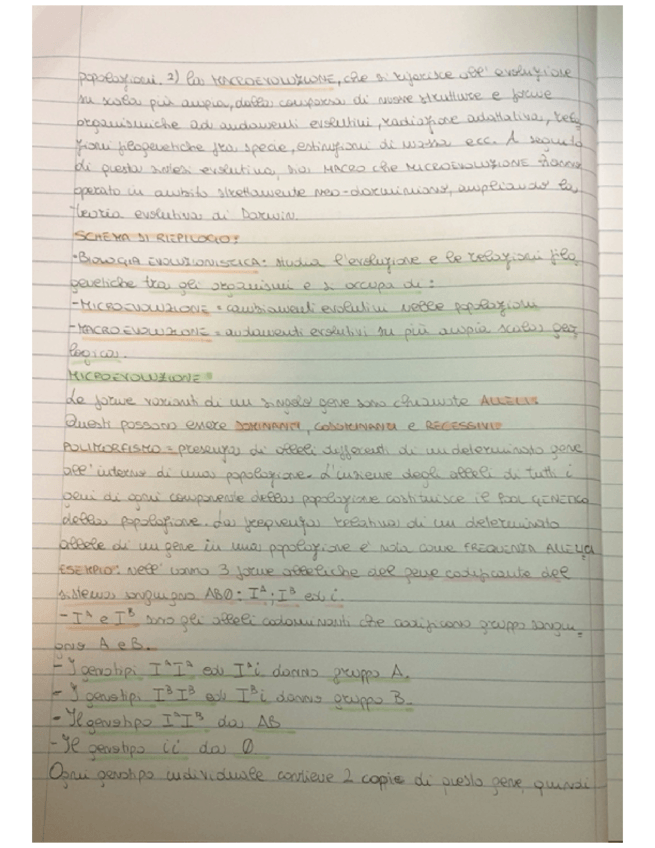 popolazioni. 2) la MACROEVOLUZIONE, che si riferisce all'evoluzione
su scala più ampia, dalla comparsa di nuove strutture e forme
organismiche ad andamenti evolutivi, radiazione adattativa, rela
zioni filogenetiche fra specie, estinzioni di massa ecc. A seguito
di questa sintesi evolutiva, sia MACRO che MICROEVOLUZIONE hanno
operato in ambito strettamente neo-darwiniano, ampliando la
teoria evolutiva di Darwin.
SCHEMA DI RIEPILOGO:
-BIOLOGIA EVOLUZIONISTICA: studia l'evoluzione e le relazioni filo
genetiche tra gli organismi e si occupa di:
-MICROEVOLUZIONE = cambiamenti evolutivi nelle popolazioni
-MACROEVOLUZIONE = andamenti evolutivi su più ampia scala geo
logica.
MICROEVOLUZIONE:
Le forme varianti di un singolo gene sono chiamate ALLELI.
Questi possono essere DOMINANTI, CODOMINANTI e RECESSIVI.
POLIMORFISMO = presenza di alleli differenti di un determinato gene
all'interno di una popolazione. L'insieme degli alleli di tutti i
geni di ogni componente della popolazione costituisce il POOL GENETICO
della popolazione. La frequenza relativa di un determinato
allele di un gene in una popolazione è nota come FREQUENZA ALLELICA
ESEMPIO: Nell'uomo 3 forme alleliche del gene codificante del
sistema sanguigno AB0: Iᴬ; Iᴮ ed i.
- Iᴬ e Iᴮ sono gli alleli codominanti che codificano gruppo sangui
gno A e B.
- I genotipi IᴬIᴬ ed Iᴬi danno gruppo A.
- I genotipi IᴮIᴮ ed Iᴮi danno gruppo B.
- Il genotipo IᴬIᴮ da AB
- Il genotipo ii da Ø
Ogni genotipo individuale contiene 2 copie di questo gene, quindi